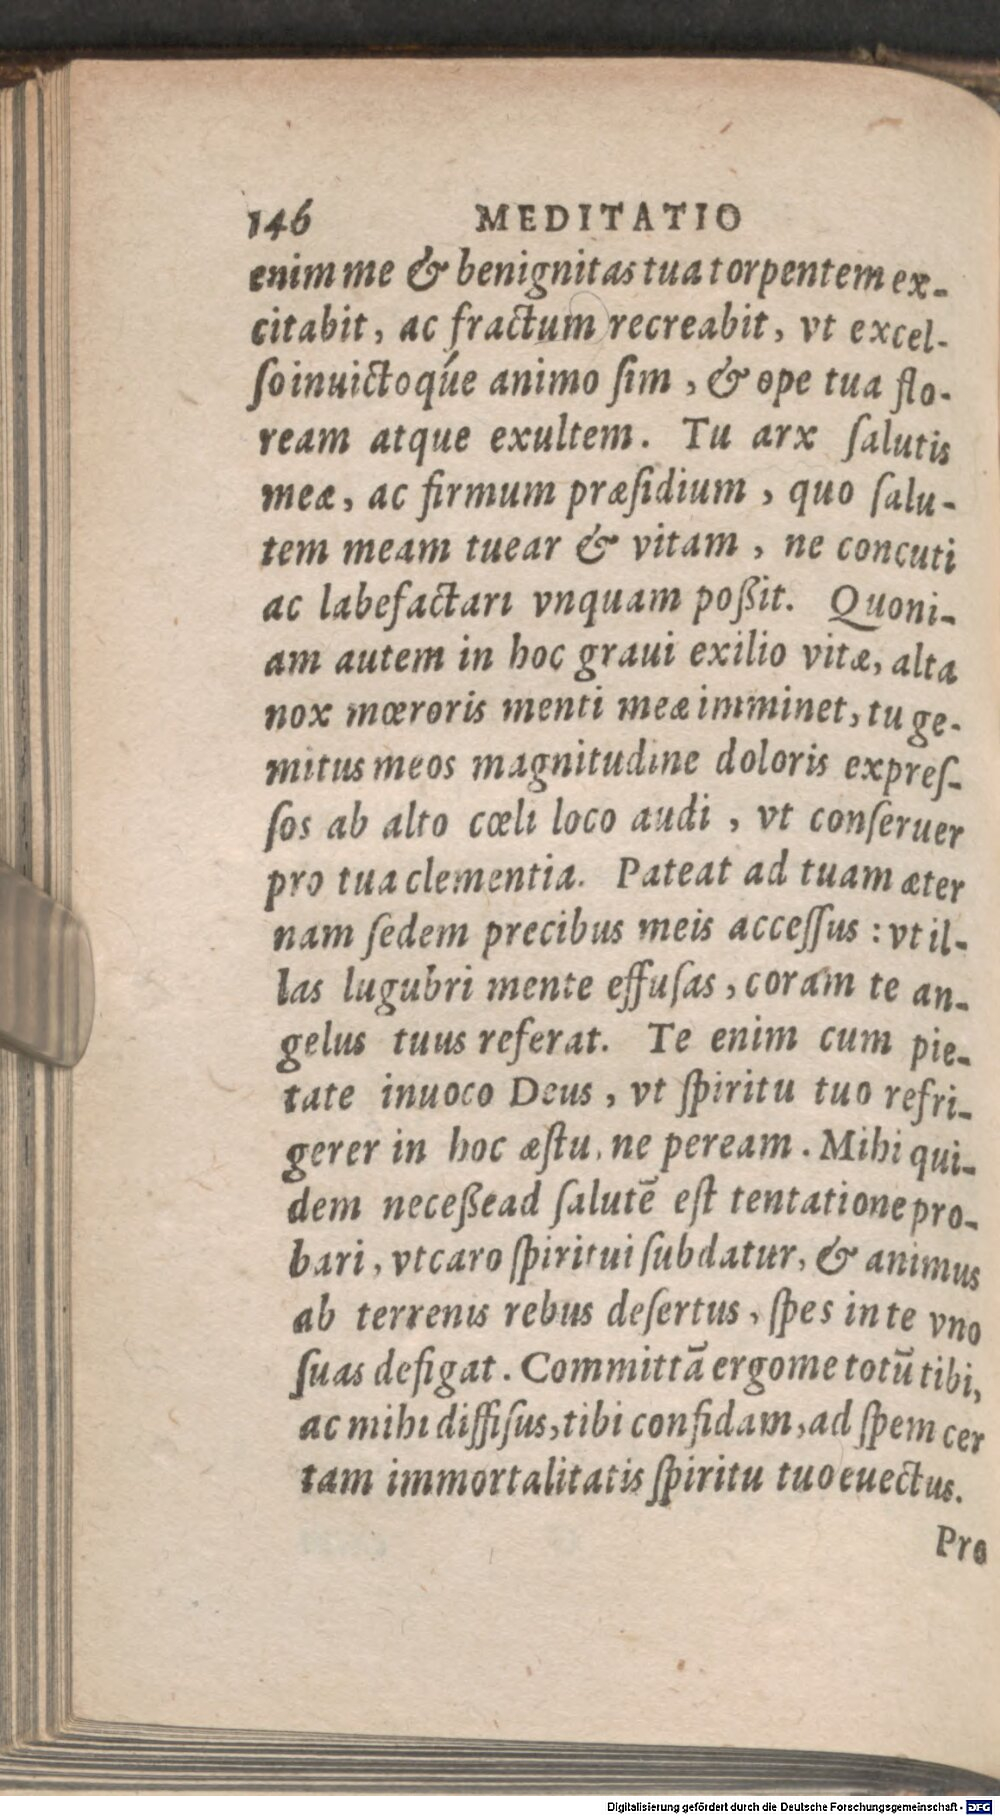 146 MEDITATIO
enim me & benignitas tua torpentem ex-
citabit, ac fractum recreabit, vt excel-
ſo inuictoq́ue animo ſim, & ope tua flo-
ream atque exultem. Tu arx ſalutis
meæ, ac firmum præſidium, quo ſalu-
tem meam tuear & vitam, ne concuti
ac labefactari vnquam poßit. Quoni-
am autem in hoc graui exilio vitæ, alta
nox mœroris menti meæ imminet, tu ge-
mitus meos magnitudine doloris expreſ-
ſos ab alto cœli loco audi, vt conſeruer
pro tua clementia. Pateat ad tuam æter
nam ſedem precibus meis acceſſus: vt il-
las lugubri mente effuſas, coram te an-
gelus tuus referat. Te enim cum pie-
tate inuoco Deus, vt ſpiritu tuo refri-
gerer in hoc æſtu, ne peream. Mihi qui-
dem neceße ad ſalutē eſt tentatione pro-
bari, vt caro ſpiritui ſubdatur, & animus
ab terrenis rebus deſertus, ſpes in te vno
ſuas defigat. Committā ergo me totū tibi,
ac mihi diffiſus, tibi confidam, ad ſpem cer
tam immortalitatis ſpiritu tuo euectus.
Pro
Digitalisierung gefördert durch die Deutsche Forschungsgemeinschaft - DFG